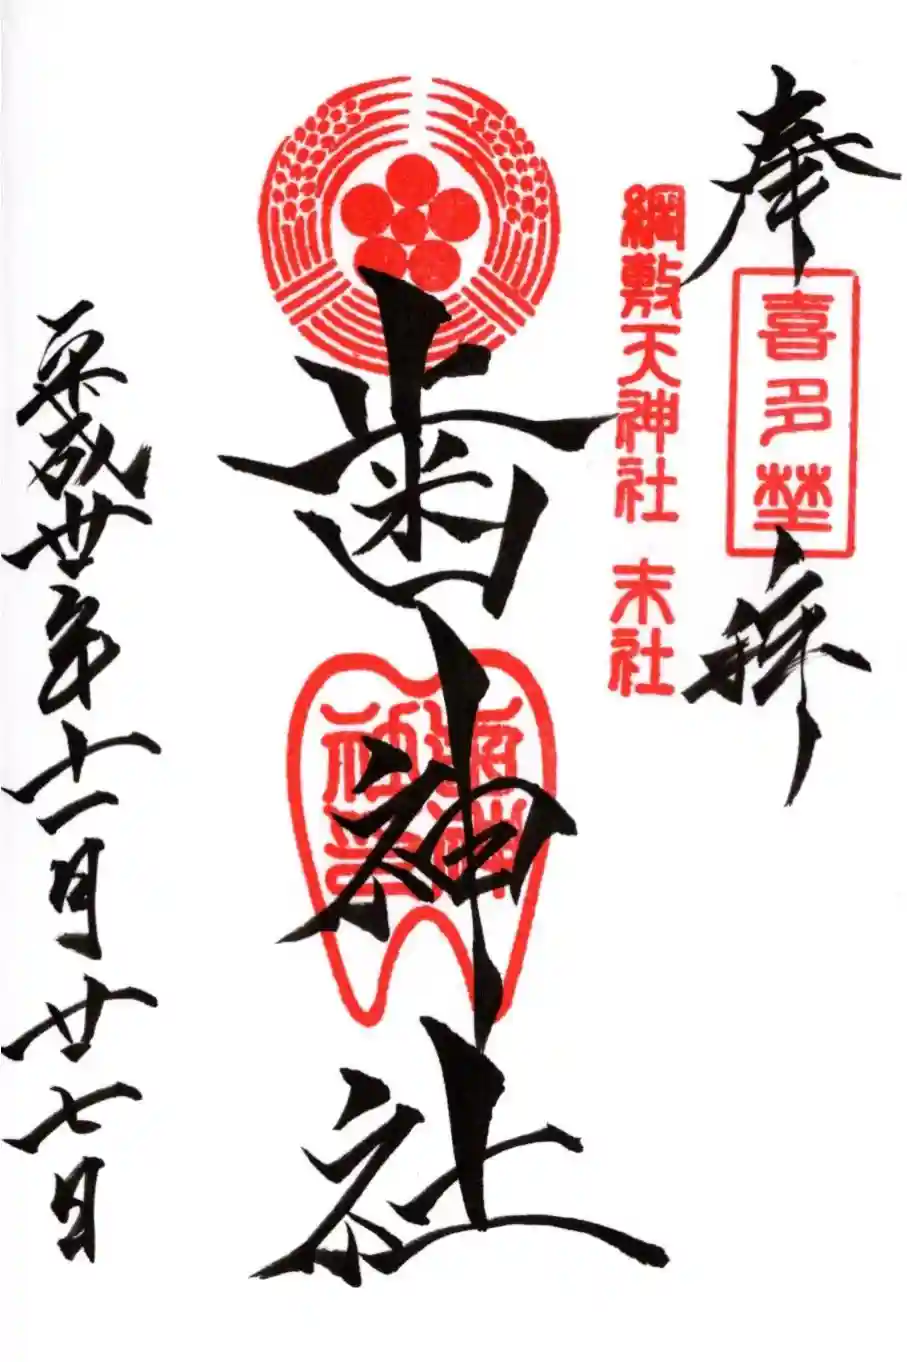 奉拝
喜多埜
綱敷天神社 末社
歯神社
歯神社印
平成廿年十一月廿七日